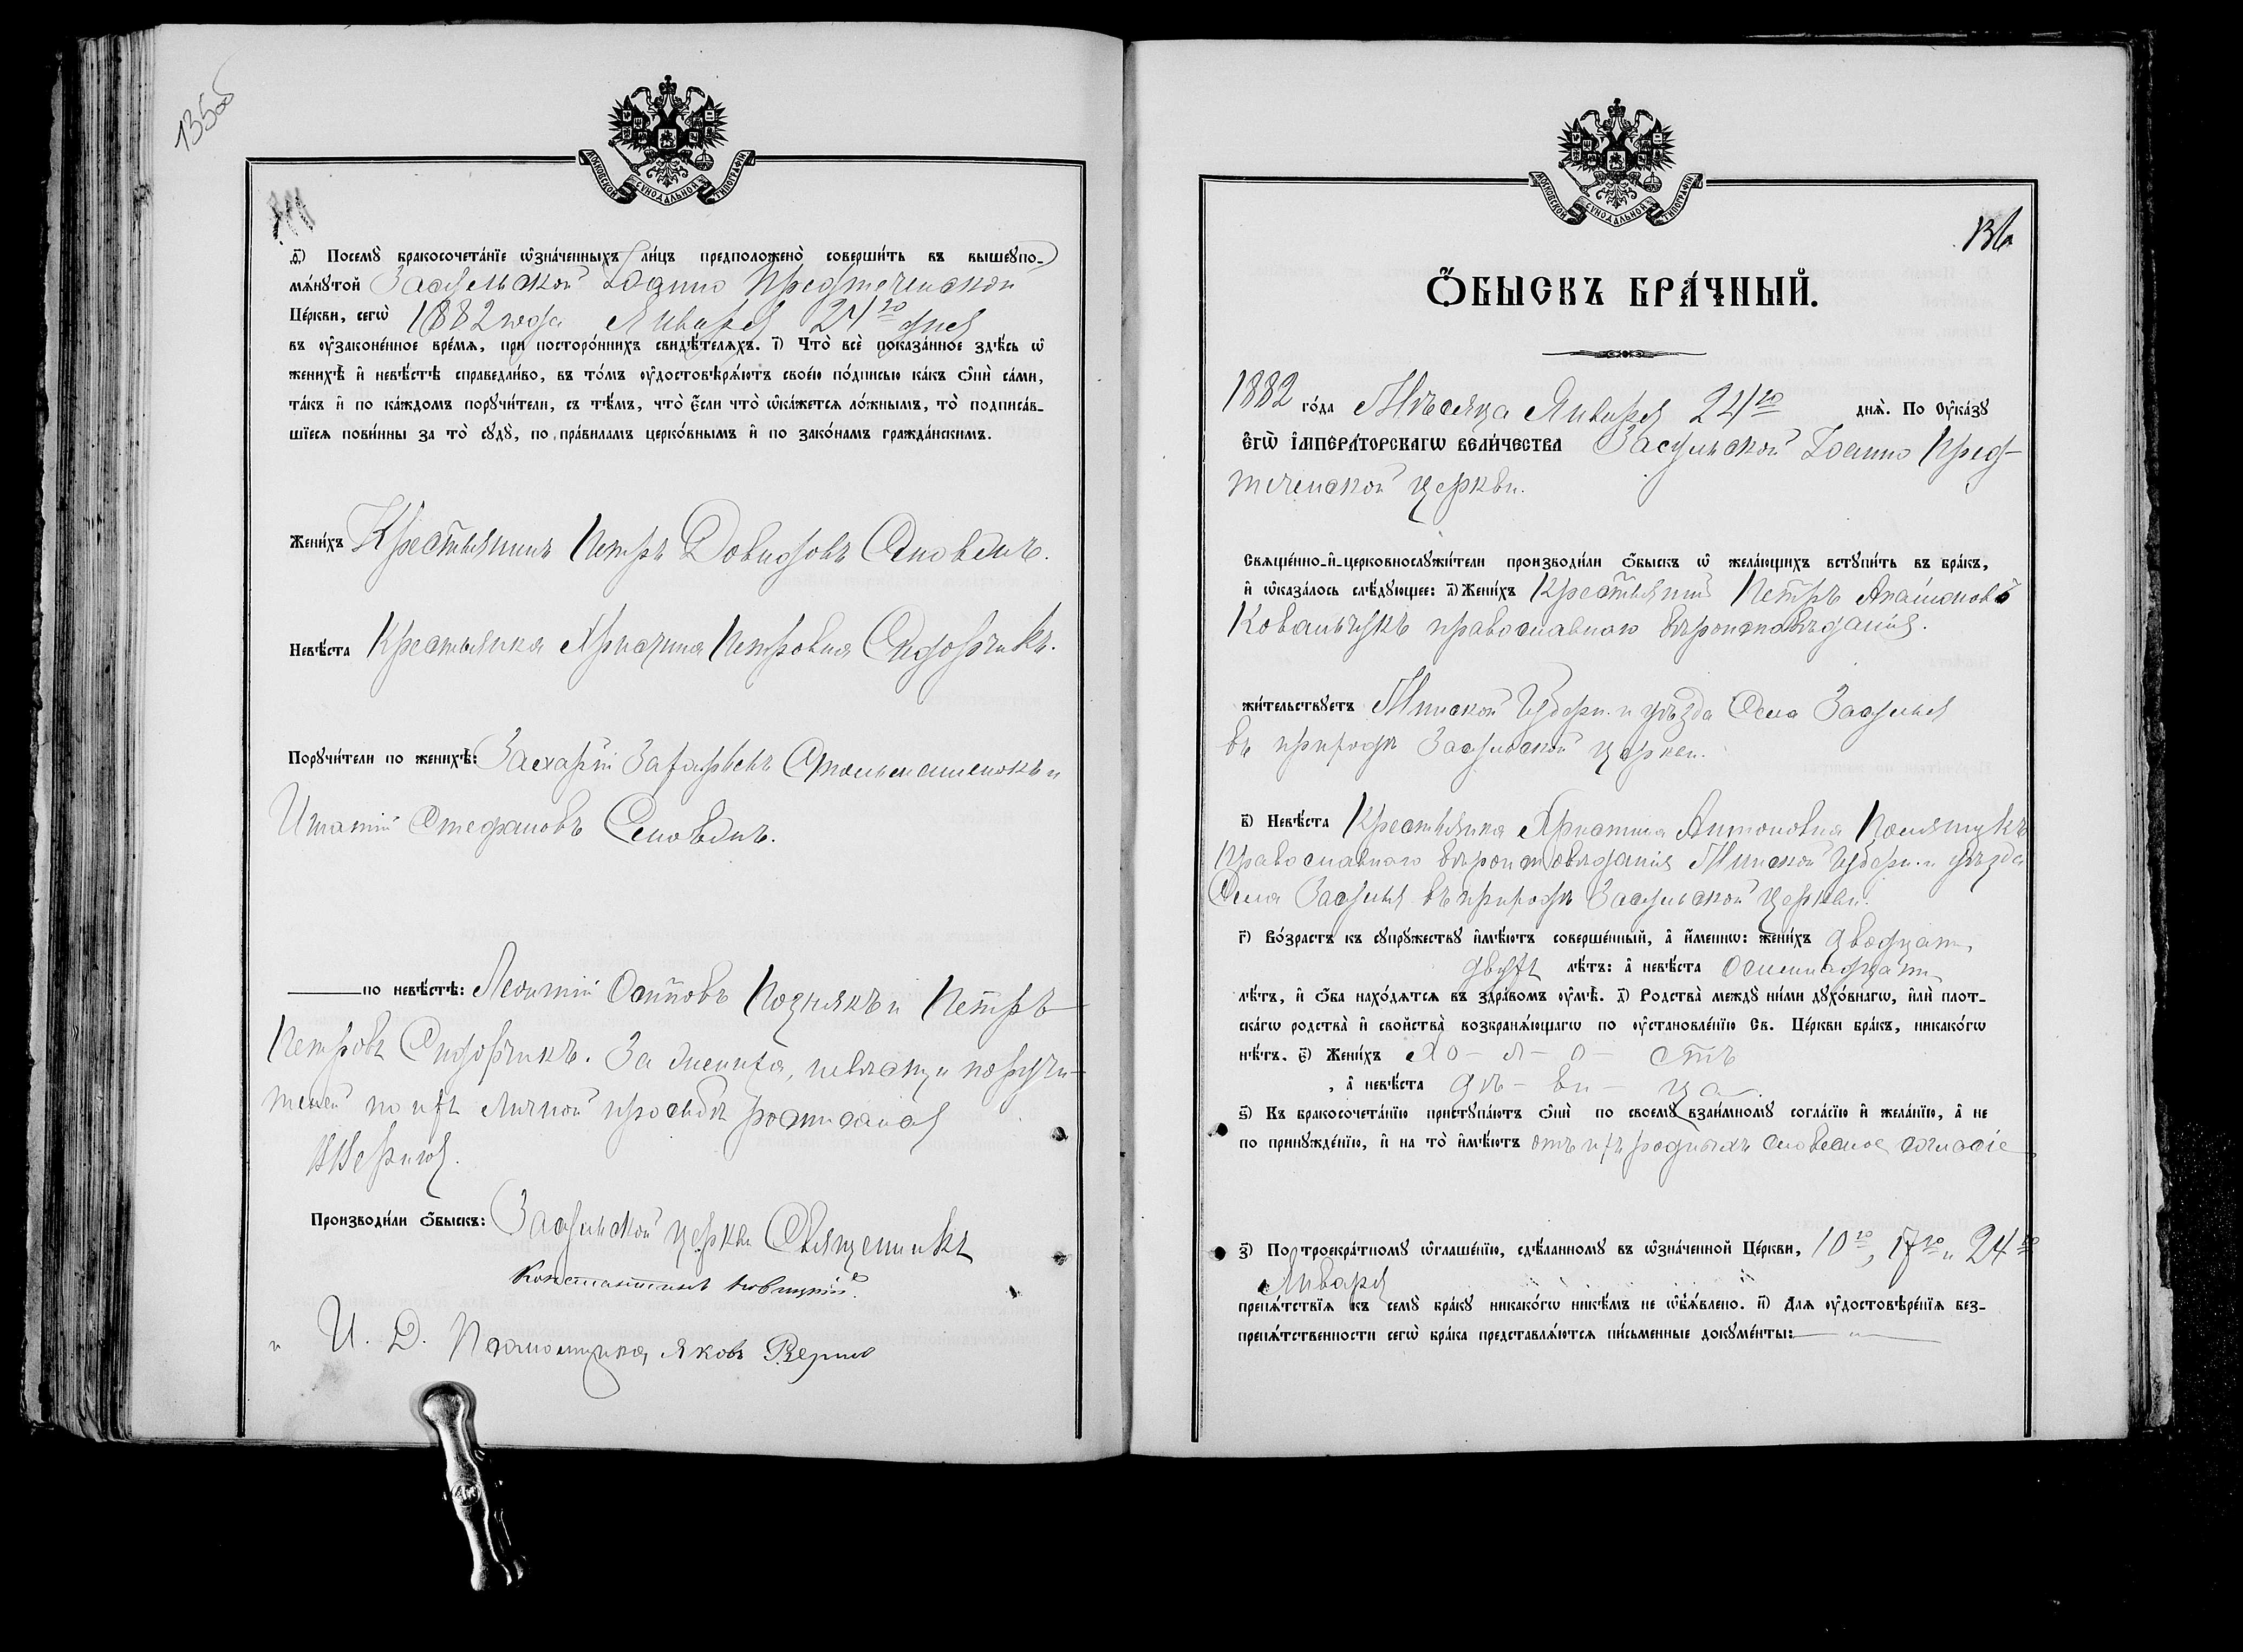 135об
МОСКОВСКОЙ СУНОДАЛЬНОЙ ТИПОГРАФІИ
д҃) Посемꙋ̀ бракосочета́нїе ѡ҆зна́ченныхъ ли́цъ предположено̀ соверши́ть въ вышеꙋпо-
мѧ́нꙋтой Засульской Іоанно Предтеченской
Це́ркви, сегѡ̀ 1882 года Января 24го дня
въ ᲂу҆законе́нное вре́мѧ, при посторо́ннихъ свидѣ́телѧхъ. і҃) Что̀ всѐ показа́нное здѣ́сь ѡ҆
женихѣ̀ и҆ невѣ́стѣ справедли́во, въ то́мъ ᲂу҆достовѣрѧ́ютъ свое́ю по́дписью ка́къ ѻ҆нѝ са́ми,
та́къ и҆ по ка́ждомъ порꙋчи́тели, съ тѣ́мъ, что̀ є҆́сли что̀ ѡ҆ка́жетсѧ ло́жнымъ, то̀ подписа́в-
шїесѧ пови́нны за то̀ сꙋдꙋ̀, по пра́виламъ церко́внымъ и҆ по зако́намъ гражда́нскимъ.
Жени́хъ Крестьянинъ Петръ Довидовъ
Невѣ́ста Крестьянка Христина Петровна Сидорчикъ.
Порꙋчи́тели по женихѣ̀: Захарій Захарьевъ и
Игнатій Стефановъ
по невѣ́стѣ: Леонтій Осиповъ Познякъ и Петръ
Петровъ Сидорчикъ. За жениха, невѣсту и поручи-
телей по ихъ личной просьбѣ росписался
Производи́ли ѻ҆́быскъ: Засульской церкви Священникъ
Константинъ
и И. Д. Псаломщика Яковъ
МОСКОВСКОЙ СУНОДАЛЬНОЙ ТИПОГРАФІИ
136
Ѻ҆́БЫСКЪ БРА́ЧНЫЙ.
1882 го́да Мѣсяца Января 24го днѧ̀. По ᲂу҆ка́зꙋ
є҆гѡ̀ и҆мпера́торскагѡ вели́чества Засульской Іоанно Пред-
теченской церкви.
Свѧще́нно-и҆-церковнослꙋжи́тели производи́ли ѻ҆́быскъ ѡ҆ жела́ющихъ встꙋпи́ть въ бра́къ,
и҆ ѡ҆каза́лось слѣ́дꙋющее: а҃) Жени́хъ Крестьянинъ Петръ
Ковальчукъ православнаго вѣроисповѣданія.
жи́тельствꙋетъ Минской Губерн. и уѣзда Села Засулья
въ приходѣ Засульской церкви.
в҃) Невѣ́ста Крестьянка Христина Антоновна Полящукъ
Православнаго вѣроисповѣданія Минской Губерн. и уѣзда
Села Засулья въ приходѣ Засульской церкви.
г҃) Во́зрастъ къ сꙋпрꙋжествꙋ и҆мѣ́ютъ соверше́нный, а҆ и҆́меннѡ: жени́хъ двадцати
двухъ лѣ́тъ: а҆ невѣ́ста осьмнадцати
лѣ́тъ, и҆ ѻ҆́ба нахо́дѧтсѧ въ здра́вомъ ᲂу҆мѣ̀. д҃) Родства̀ междꙋ̀ ни́ми дꙋхо́внагѡ, и҆лѝ плот-
ска́гѡ родства̀ и҆ сво́йства̀ возбранѧ́ющагѡ по ᲂу҆становле́нїю Св. Це́ркви бра́къ, никако́гѡ
нѣ́тъ. є҃) Жени́хъ хо - ло - с - тъ
, а҆ невѣ́ста дѣ - ви - ца
ѕ҃) Къ бракосочета́нїю пристꙋпа́ютъ ѻ҆нѝ по своемꙋ̀ взаи́мномꙋ согла́сїю и҆ жела́нїю, а҆ не
по принꙋжде́нїю, и҆ на то̀ и҆мѣ́ютъ отъ ихъ родныхъ словесное согласіе
з҃) По троекра́тномꙋ ѡ҆глаше́нїю, сдѣ́ланномꙋ въ ѡ҆зна́ченной Це́ркви, 10го, 17го и 24го
Января
препѧ́тствїѧ къ семꙋ̀ бра́кꙋ никако́гѡ никѣ́мъ не ѡ҆б̾ѧ́влено. и҃) Длѧ ᲂу҆достовѣре́нїѧ без-
препѧ́тственности сегѡ̀ бра́ка представлѧ́ютсѧ пи́сьменные докꙋме́нты: — „ —